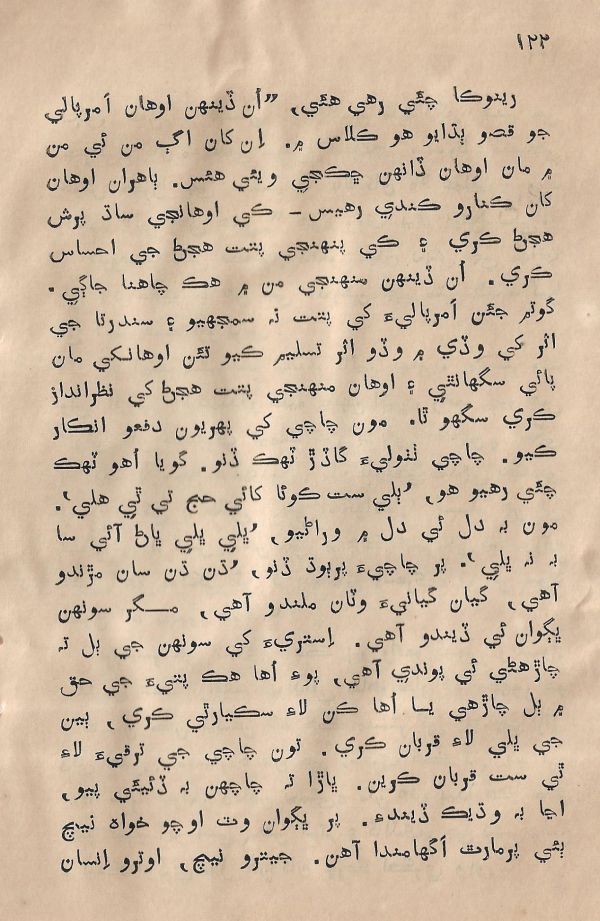 ١٢٣
رينوڪا چئي رهي هئي، ”اُن ڏينهن اوهان اَمرپالي
جو قصو ٻڌايو هو ڪلاس ۾. اِن کان اڳ من ئي من
۾ مان اوهان ڏانهن ڇڪجي ويئي هئس. ٻاهران اوهان
کان ڪنارو ڪندي رهيس – ڪي اوهانجي ساڌ پرش
هجڻ ڪري ۽ ڪي پنهنجي پتت هجڻ جي احساس
ڪري. اُن ڏينهن منهنجي من ۾ هڪ چاهنا جاڳي.
گوتم جئن اَمرپاليءَ کي پتت نہ سمجهيو ۽ سندرتا جي
اثر کي وڏي ۾ وڏو اثر تسليم ڪيو تئن اوهانکي مان
پائي سگهانٿي ۽ اوهان منهنجي پتت هجڻ کي نظرانداز
ڪري سگهو ٿا. مون چاچي کي پهريون دفعو انڪار
ڪيو. چاچي ٺٺوليءَ گاڏڙ ٽهڪ ڏنو. گويا اُهو ٽهڪ
چئي رهيو هو، ’ٻلي ست ڪوئا کائي حج تي ٿي هلي‘.
مون بہ دل ئي دل ۾ وراڻيو، ’ڀلي ڀلي ڀاڻ آئي سا
بہ نہ ڀلي‘. پر چاچيءَ پرٻوڌ ڏنو، ’ڌن ڌن سان مڙندو
آهي، گيان گيانيءَ وٽان ملندو آهي، مگر سونهن
ڀڳوان ئي ڏيندو آهي. اِستريءَ کي سونهن جي ٻل تہ
چاڙهڻي ئي پوندي آهي، پوءِ اُها هڪ پتيءَ جي حق
۾ ٻل چاڙهي يا اُها ڪن لاءِ سڪيارٿي ڪري، ٻين
جي ڀلي لاءِ قربان ڪري. تون چاچي جي ترقيءَ لاءِ
ٿي ست قربان ڪرين. ڀاڙا تہ چاچهن بہ ڏئيئي پيو،
اڃا بہ وڌيڪ ڏيندءِ. پر ڀڳوان وٽ اوچو خواہ نيچ
ٻئي پرمارٿ اَگهامندا آهن. جيترو نيچ، اوترو اِنسان